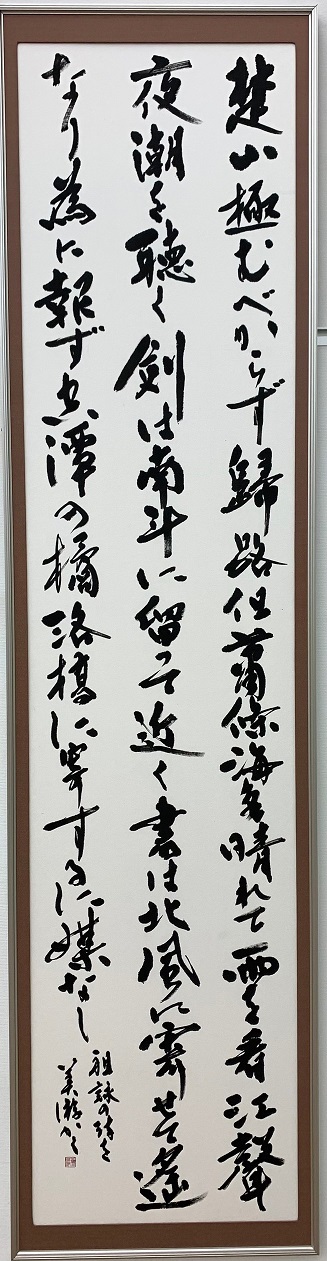 楚山極むべからず歸路但蕭條海色晴れて雨を看江聲
夜潮を聴く剣は南斗に留って近く書は北風に寄せて遥
なり為に報ず空潭の橘洛橋に寄するに媒なし
祖詠の詩を